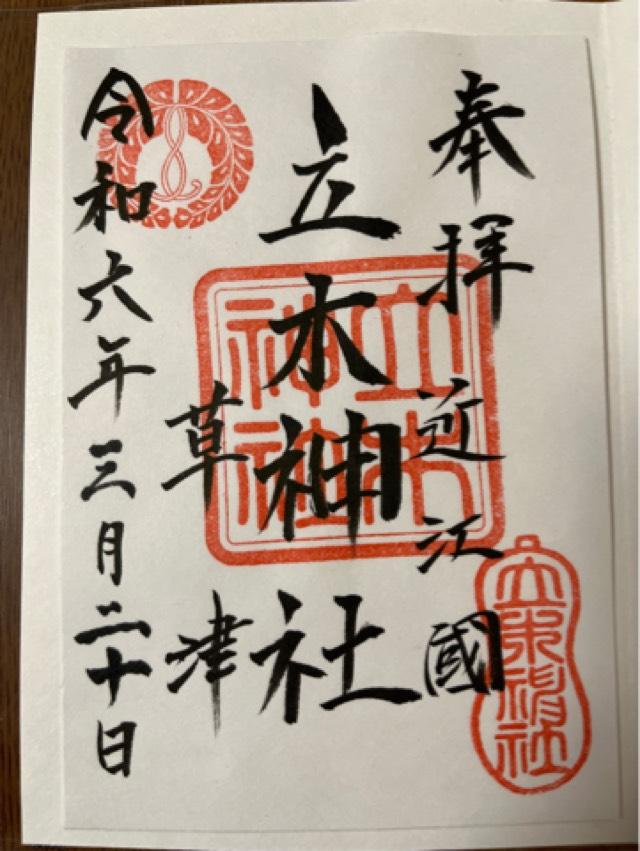 奉拝 近江國
立木神社
草津
令和六年三月二十日
立木神社
立木神社